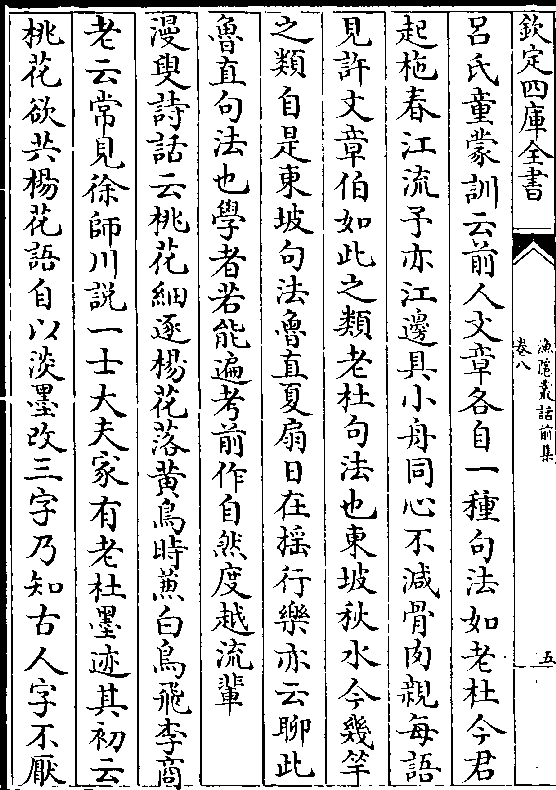 欽定四庫全書
漁隱叢話前集
卷八
五
呂氏童蒙訓云前人文章各自一種句法如老杜今君
起柂春江流予亦江邊具小舟同心不減骨肉親每語
見許文章伯如此之類老杜句法也東坡秋水今幾竿
之類自是東坡句法魯直夏扇日在揺行樂亦云聊此
魯直句法也學者若能遍考前作自然度越流輩
漫叟詩話云桃花細逐楊花落黄鳥時兼白鳥飛李商
老云常見徐師川説一士大夫家有老杜墨迹其初云
桃花欲共楊花語自以淡墨改三字乃知古人字不厭